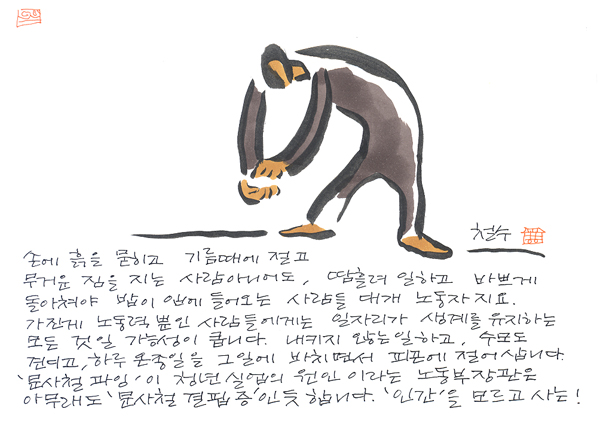 철수
손에 흙을 묻히고 기름때에 절고
무거운 짐을 지는 사람아니어도, 땀흘려 일하고 바쁘게
돌아쳐야 밥이 입에 들어오는 사람들 대개 노동자지요.
가진게 노동력 뿐인 사람들에게는 일자리가 생계를 유지하는
모든 것일 가능성이 큽니다. 내키지 않는 일하고, 수모도
견디고, 하루 온종일을 그 일에 바치면서 피로에 절어 삽니다.
'문사철 과잉'이 청년실업의 원인 이라는 노동부장관은
아무래도 '문사철 결핍 증'인듯 합니다. '인간'을 모르고 사는!